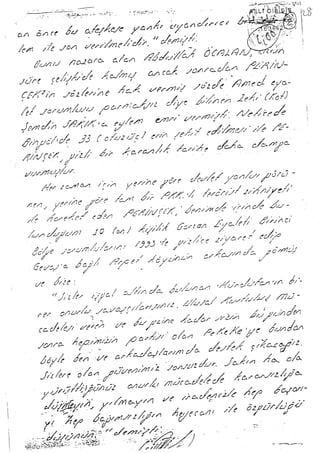 an önce bu ateşkese yankı uyandırıcı bir
lem ile son verilmelidir." demişti.
Bunu nazara alan Abdullah ÖCALAN, uzun
süre çelişkide kalmış ancak sonradan PERİN-
ÇEK'in sözlerine hak vermiş sözde Amed eya-
let sorumlusu parmaksız diye bilinen Zeki (Kod)
Şemdin SAKIK'a eylem emri vermişti. Neticede
Bingöl'de 33 (otuzüç) erin şehit edilmesi ile PE-
RİNÇEK, gizli bir karanlık tarihe daha damga
vurmuştur.
Her zaman için yerine göre devlet yanlısı görü-
nen, yerine göre tam bir PKK.lı terörist zihniyeti
ile hareket eden PERİNÇEK, benimde içinde bu-
lunduğum 10 (on) kişilik Garzan Eyaleti Birinci
Bölge sorumlularını 1993 de gizlice ziyaret edip
Gevaş'a bağlı köyünün arkasında görmüş
ve bize:
"Sizler işgal altında bulunan Kürdistan'ın bi-
rer onurlu savaşçılarısınız. Ulusal Kurtuluş mü-
cadelesi veren ve bu güne kadar sizin bugünden
sonra hepimizin partisi olan PeKeKe'ye bundan
böyle ben ve arkadaşlarımda destek çıkacağız.
Sizlere olan güvenimiz sonsuzdur. Sakın ha ola
yürüttüğünüz onurlu mücadelede karamsarlığa
düşmeyin, yılmayın ve iradenizle hep başarı-
yı hep bağımsızlığın heyecanı ile özgürlüğü
düşünün." demişti.